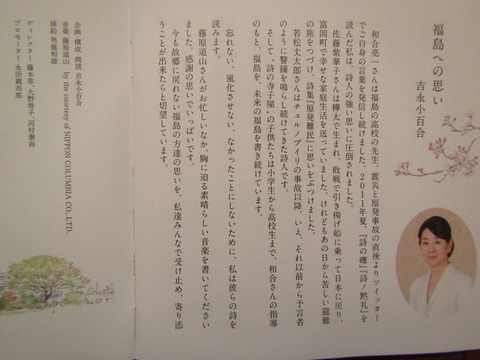 福島への思い
吉永小百合
和合亮一さんは福島の高校の先生。震災と原発事故の直後よりツイッター
でご自身の言葉を発信し続けました。2011年夏、『詩の礫』『詩ノ黙礼』を
読んだ私は、詩人の強い思いに圧倒されました。
佐藤紫華子さんは樺太で生まれ、敗戦で引き揚げ船に乗って日本に戻り、
富岡町で幸せな家庭生活を送っていました。けれどもあの日から苦しい避難
の旅をつづけ、詩集『原発難民』に思いをぶつけました。
若松丈太郎さんはチェルノブイリの事故以降、いえ、それ以前から予言者
のように警鐘を鳴らし続けてきた詩人です。
そして"詩の寺子屋"の子供たちは小学生から高校生まで、和合さんの指導
のもと、福島を、未来の福島を書き続けています。
忘れない、風化させない、なかったことにしないために、私は彼らの詩を
読みます。
藤原道山さんがお忙しいなか、胸に迫る素晴らしい音楽を書いてください
ました。感謝の思いでいっぱいです。
今も故郷に戻れない福島の方達の思いを、私達みんなで受け止め、寄り添
うことが出来たらと切望しています。
企画・構成・朗読 吉永小百合
音楽 藤原道山 by the courtesy of NIPPON COLUMBIA CO., LTD.
挿絵 男鹿和雄
ディレクター 藤本草、大野寿子、河村泰尚
プロモーター 永田親市郎